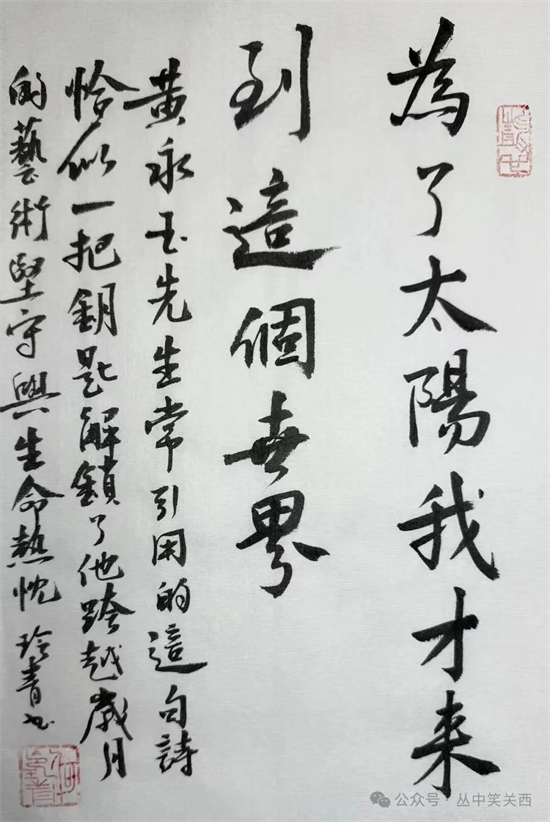 為了太陽我才来
到這個世界
黄永玉先生常引用的這句詩
恰似一把鑰匙解鎖了他跨越歲月
的藝術堅守與生命熱忱 玲青书
公众号·丛中笑关西